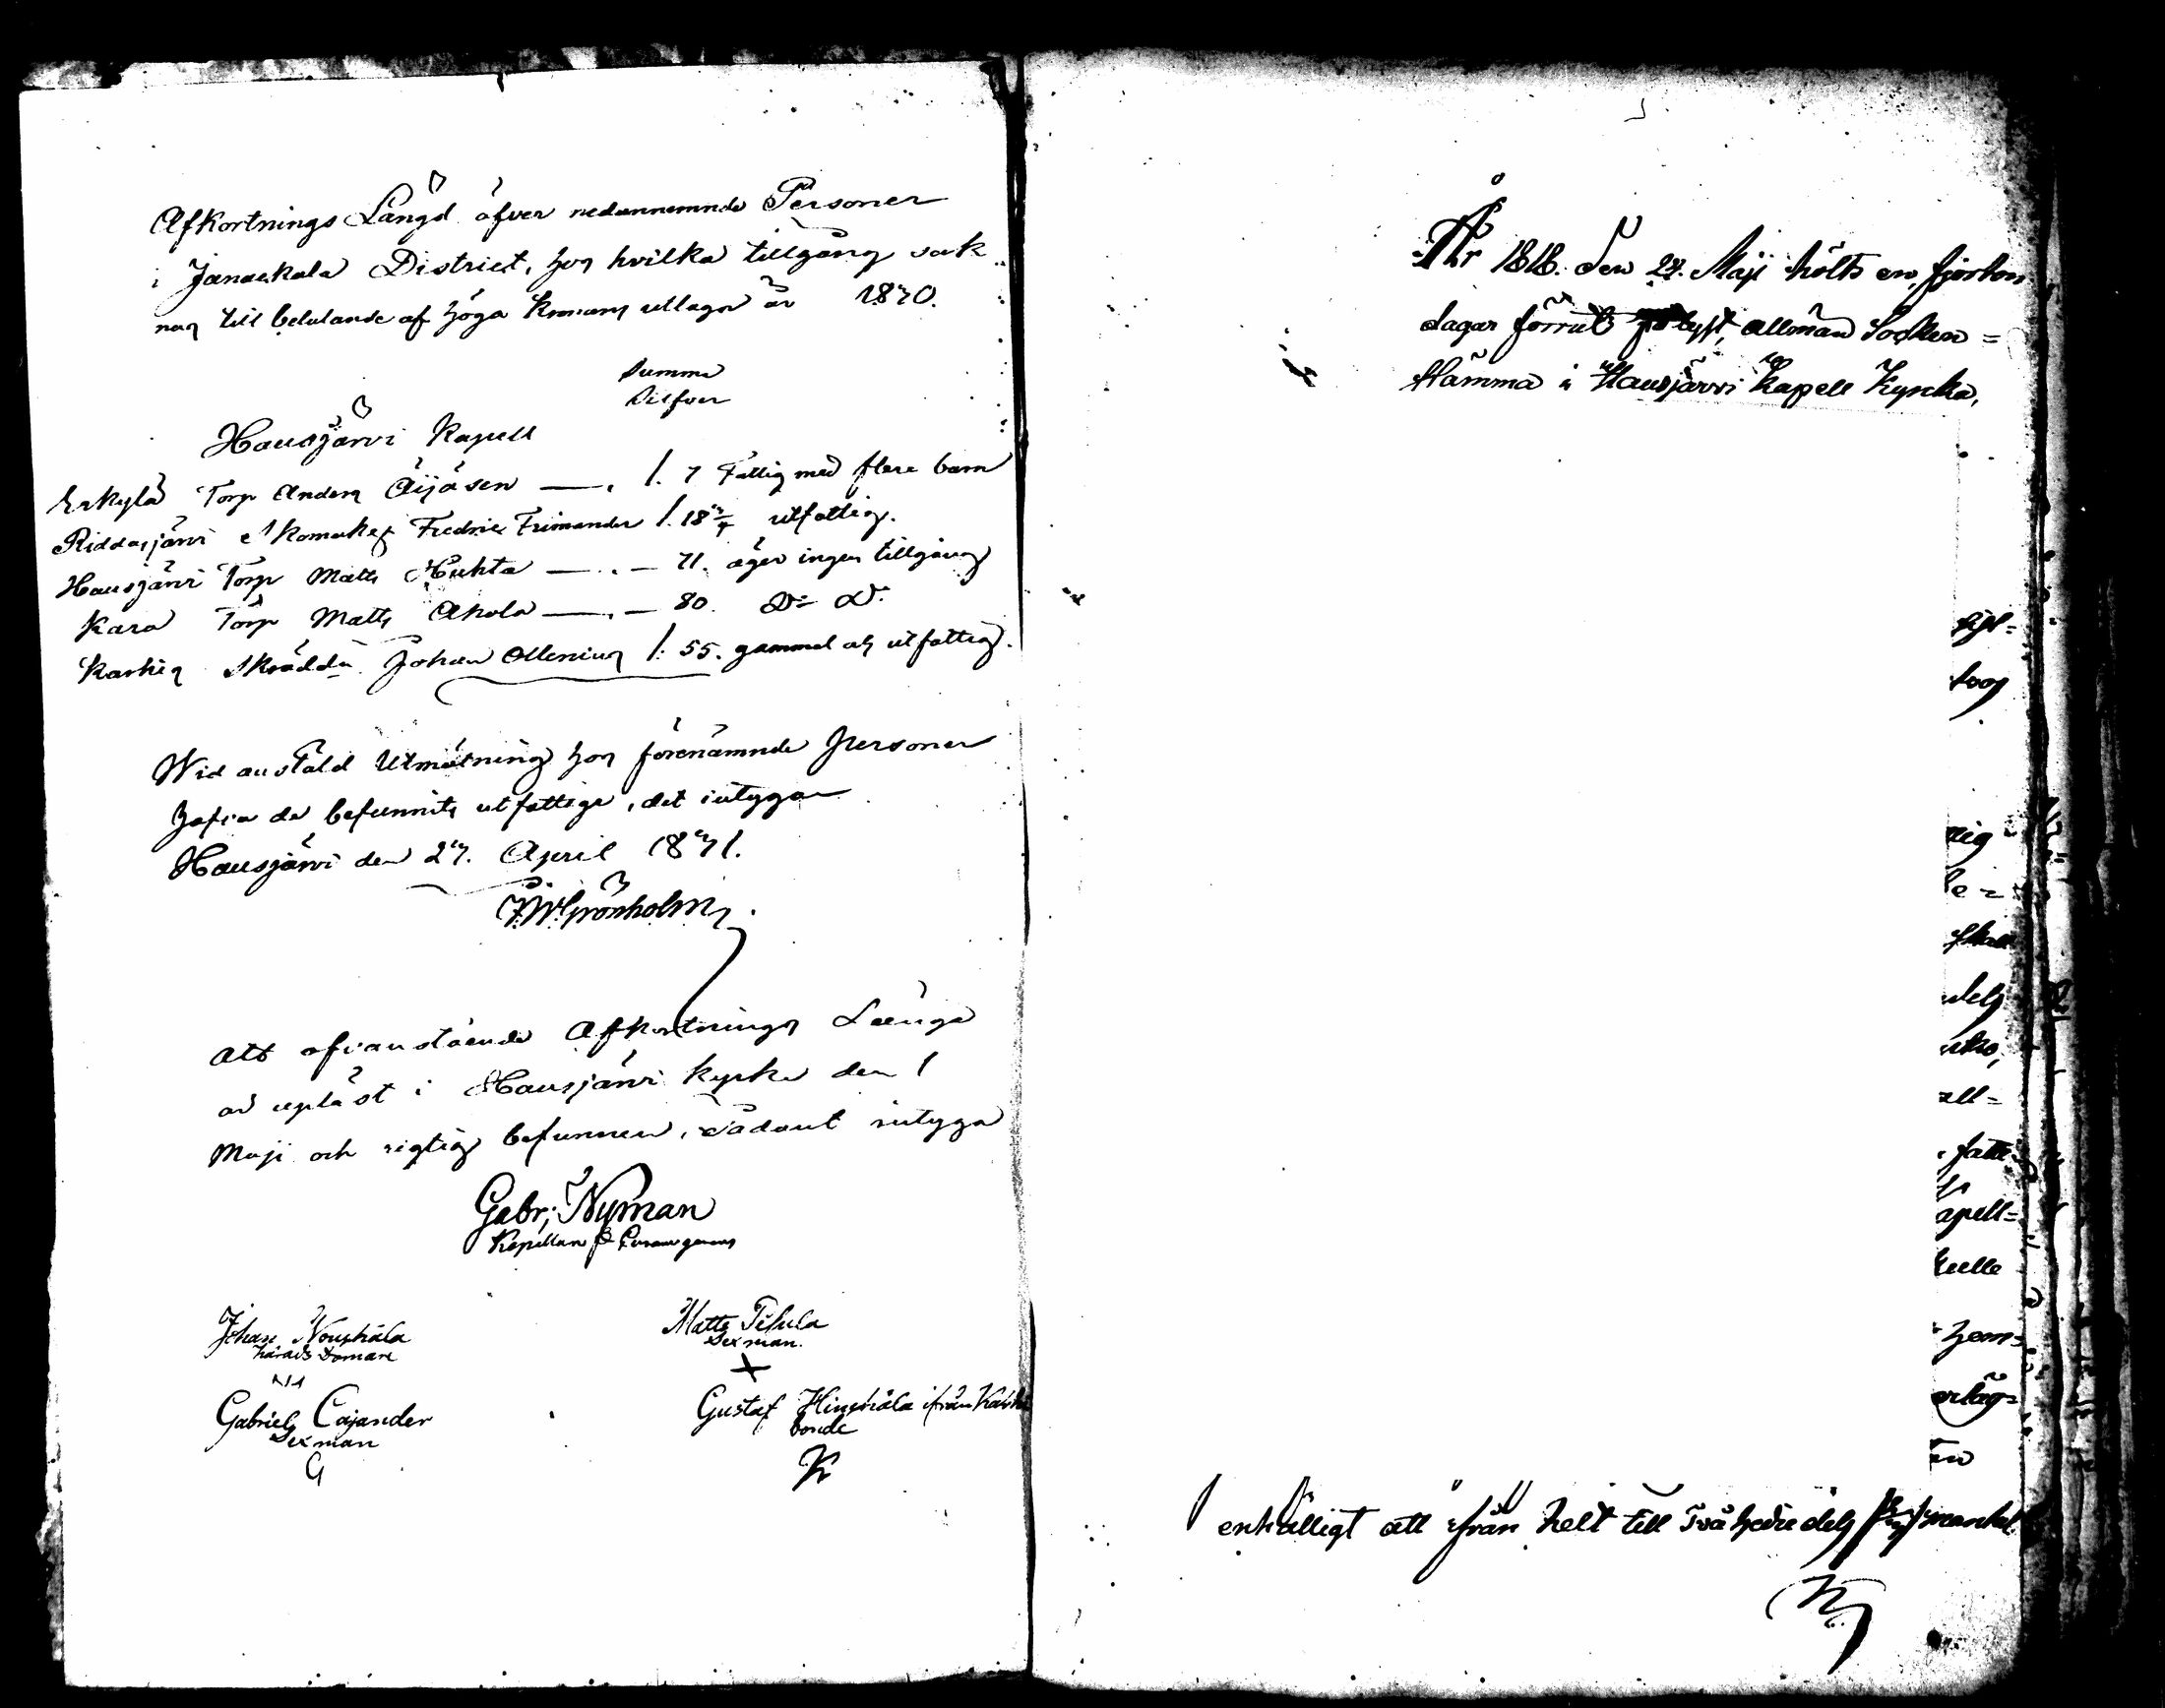 Afkortnings Längd öfver nedannemnde Personer
i Janackala District, hos hvilka tillgång sak-
nas till betalande af höga Kronans utlagor år 1870.
Summa
Silfver
Hausjärvi Kapell
Erkylä Torp Anders Äijäsen —. 1. 7 Fattig med flere barn
Riddasjärvi Skomakes Fredric Frimander 1. 18 utfattig.
Hausjärvi Torp Matts Huhta —.— 71. äger ingen tillgång
Kara Torp Matts Ahola —.— 80. D:o D:o
Karhis Skräddn Johan Ollenius 1. 55. gammal och utfattig.
Wid anstäld Utmätning hos förenämnde personer
hafva de befunnits utfattige, det intygar
Hausjärvi den 27. April 1871.
F. W. Grönholm
Att ofvanstående Afkortnings Längd
är upläst i Hausjärvi kyrka den 1
Maji och rigtig befunnen, sådant intyga
Gabr; Nyman
Kapellan
Johan Nouskala
härads Domare
Matts Pihula
Sexman.
X
Gabriel Cajander
Sexman
G
Gustaf Hinskala ifrån Karhi
bonde
K
År 1818. Den 24. Maji hölts en, fjorton
dagar förrut pålyst, allmän Socken=
stämma i Hausjärvi Kapell Kyrka,
apell=
enhälligt att ifrån helt till två tredie dels mantal